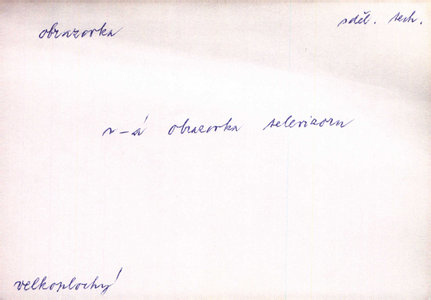 obrazovka
sděl. tech.
v-á obrazovka televizoru
velkoplochý